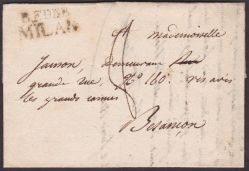 R.F.DE
MILAN
A mademoiselle
demeurant
grande rue, No. 160. vis avis
les grands carmes
Besançon